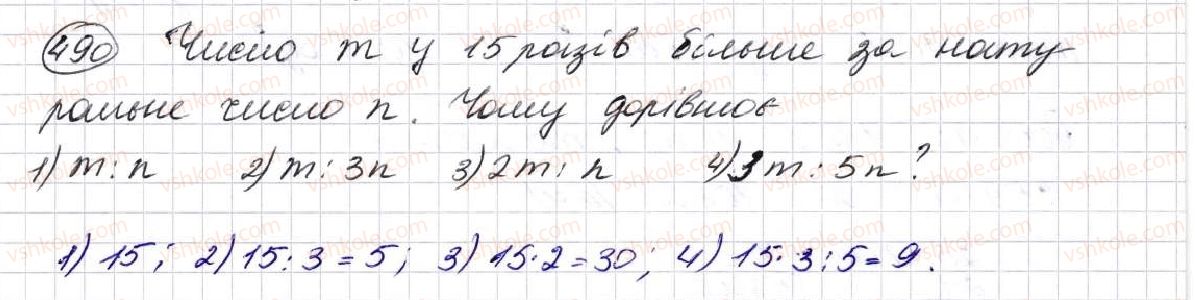 490 Число m у 15 разів більше за нату
ральне число n. Чому дорівнює
1) m : n 2) m : 3n 3) 2m : n 4) 3m : 5n ?
1) 15 ; 2) 15 : 3 = 5 ; 3) 15 · 2 = 30 ; 4) 15 · 3 : 5 = 9 .